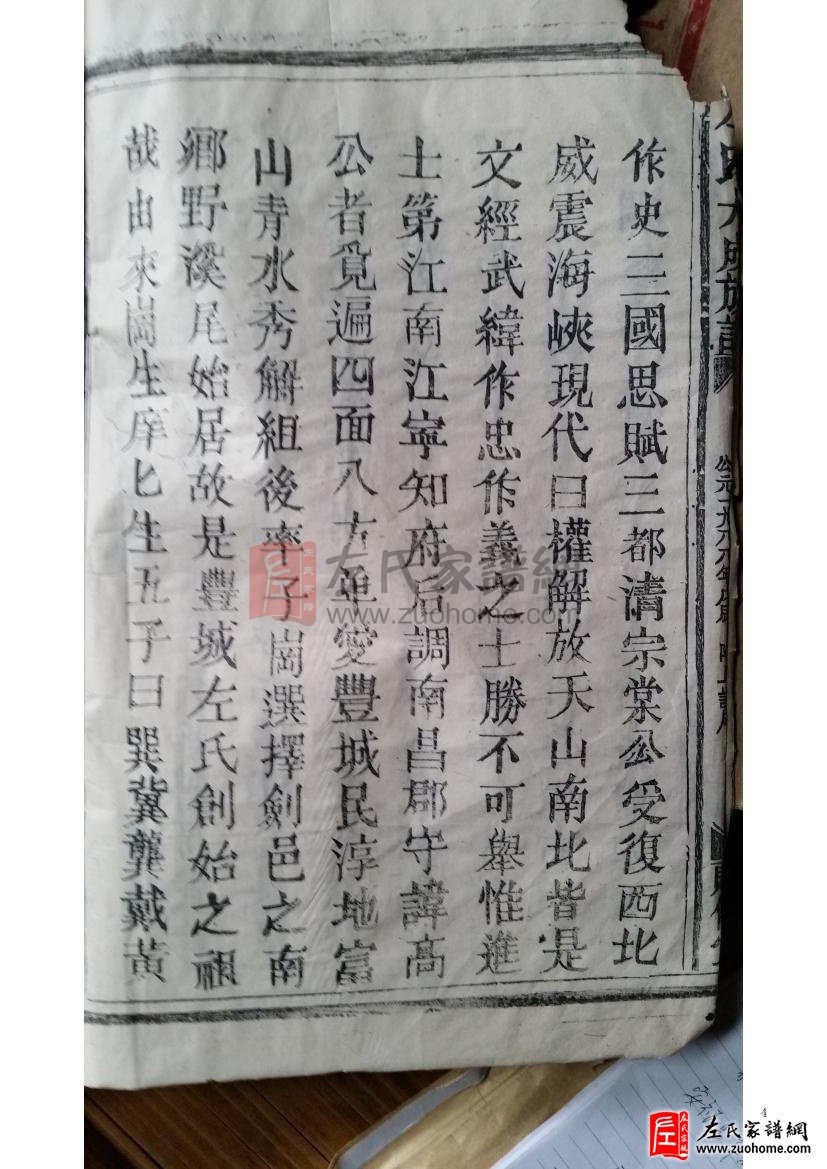 作史三國思賦三都清宗棠公受復西北
威震海峽現代曰權解放天山南北皆是
文經武緯作忠作義之士勝不可舉惟進
士第江南江寧知府后調南昌郡守諱高
公者覓遍四面八方單愛豐城民淳地富
山青水秀解組後率子崗選擇劍邑之南
鄉野溪尾始居故是豐城左氏創始之祖
哉由來崗生庠匕生五子曰巽冀龔戴黃
左氏家譜網
www.zuohome.com
左氏家譜
4
左氏家譜網
www.zuohome.com